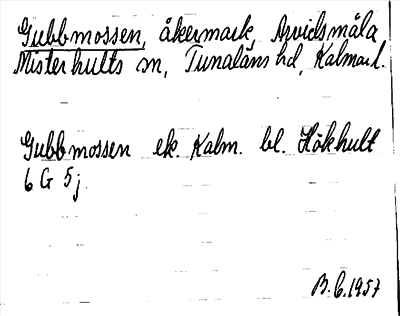 Gubbmossen, åkermark, Arvidsmåla
Misterhults sn, Tunaläns hd, Kalmar l.
Gubbmossen ek. Kalm. bl. Hökhult
6 G 5 j.
B.C. 1957